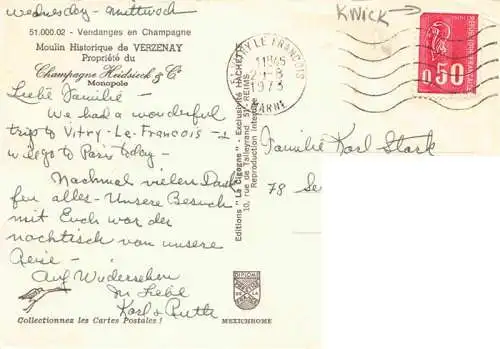 Wednesday - Mittwoch
51.000.02 - Vendanges en Champagne
Moulin Historique de VERZENAY
Propriété du
Champagne Heidsieck & Cº
Monopole
Liebe Familie -
We had a wonderful
trip to Vitry-Le-Francois -
will go to Paris today -
Nachmal vielen Dank
fur alles - Unsere Besuch
mit Euch war der
nachtisch von unsere
Reise -
Auf Wiedersehen
In Liebe
Karl & Ruth
Collectionnez les Cartes Postales !
MEXICHROME
Editions "La Cigogne" - Exclusivités HACHETTE
10, rue de Talleyrand 51-REIMS
Reproduction interdite
VITRY LE FRANCOIS
1973
MARNE
KWICK
REPUBLIQUE FRANÇAISE
0,50
Familie Karl Stark
78 Se